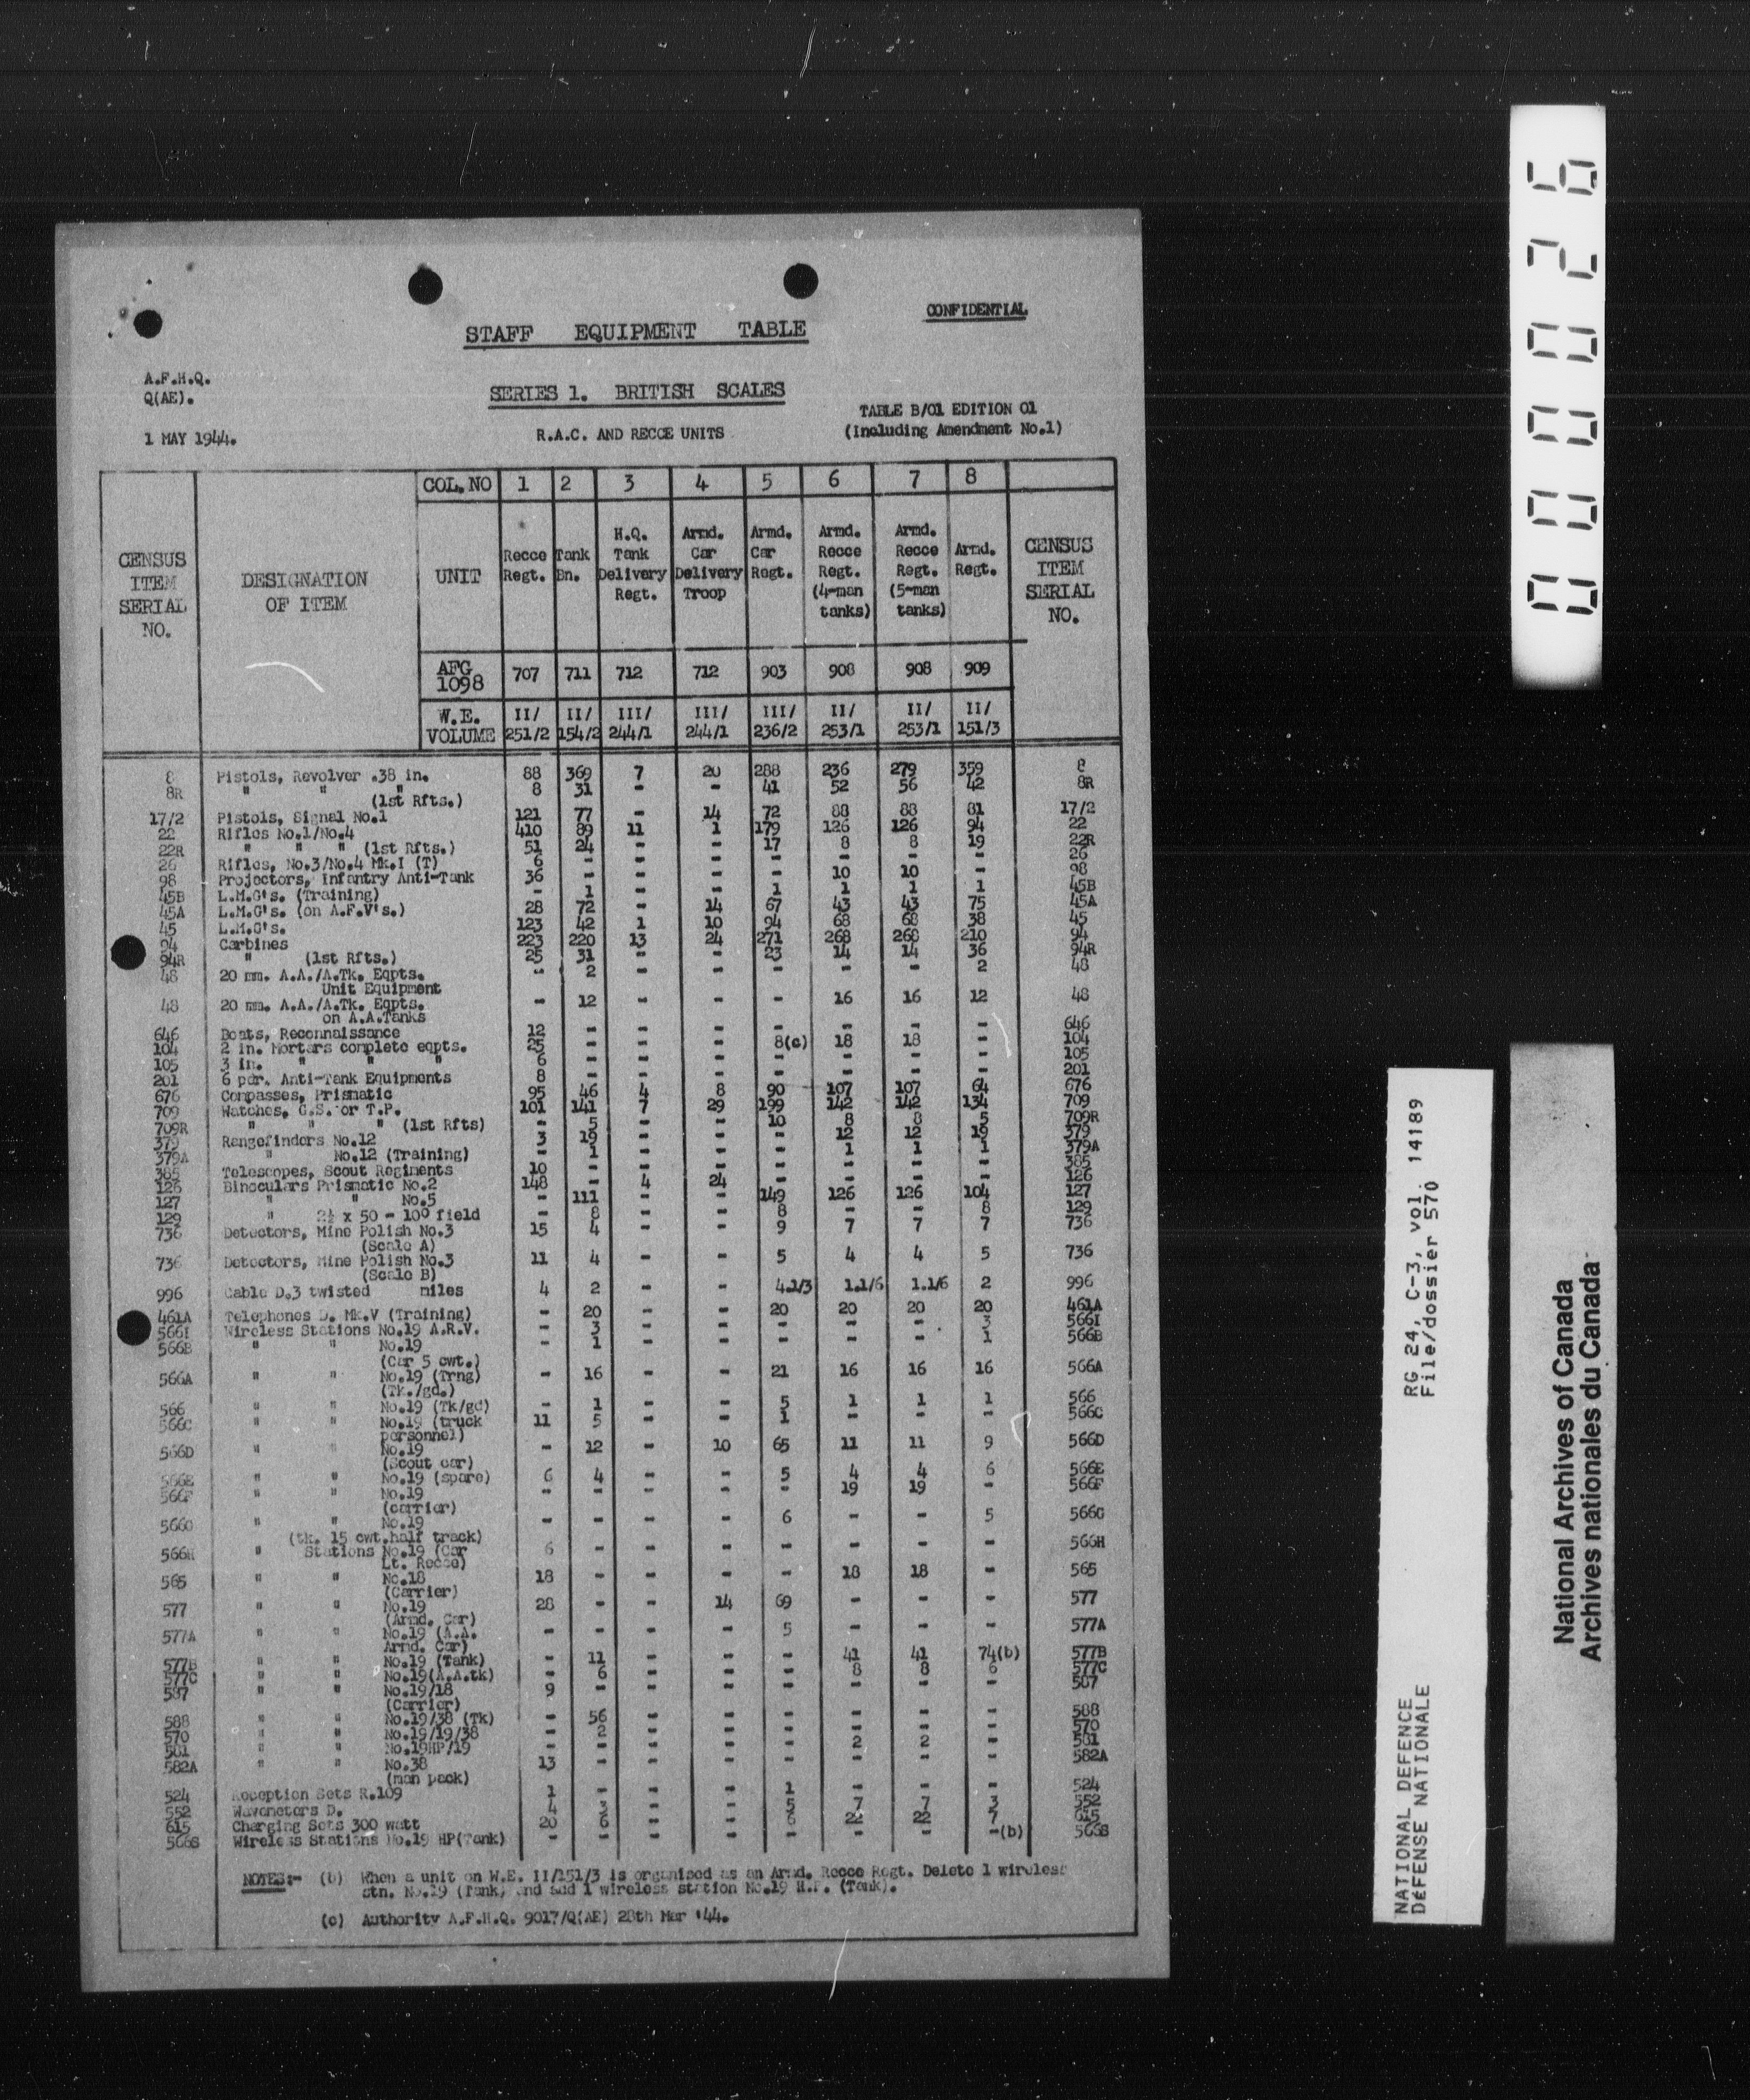 CONFIDENTIAL
STAFF EQUIPMENT TABLE
A.F.H.Q.
Q(AE).
SERIES 1. BRITISH SCALES
TABLE B/01 EDITION 01
1 MAY 1944.
R.A.C. AND RECCE UNITS
(Including Amendment No.1)
CENSUS ITEM SERIAL NO.
DESIGNATION OF ITEM
COL. NO 1 2 3 4 5 6 7 8
UNIT Recce Regt. Tank Bn. H.Q. Tank Delivery Regt. Armd. Car Delivery Troop Armd. Car Regt. Armd. Recce Regt. (4-man tanks) Armd. Recce Regt. (5-man tanks) Armd. Regt.
CENSUS ITEM SERIAL NO.
AFG 1098 707 711 712 712 903 908 908 909
W.E. VOLUME II/251/2 II/154/2 III/244/1 III/244/1 III/236/2 II/253/1 II/253/1 II/151/3
8 Pistols, Revolver .38 in. 88 369 7 20 288 236 279 359 8
8R " " " (1st Rfts.) 8 31 - - 41 52 56 42 8R
17/2 Pistols, Signal No.1 121 77 - 14 72 88 88 81 17/2
22 Rifles No.1/No.4 410 89 11 1 179 126 126 94 22
22R " " " (1st Rfts.) 51 24 - - 17 8 8 19 22R
26 Rifles, No.3/No.4 Mk.I (T) 6 - - - - - - - 26
98 Projectors, Infantry Anti-Tank 36 - - - - 10 10 - 98
45B L.M.G's. (Training) - 1 - - 1 1 1 1 45B
45A L.M.G's. (on A.F.V's.) 28 72 - 14 67 43 43 75 45A
45 L.M.G's. 123 42 1 10 94 68 68 38 45
94 Carbines 223 220 13 24 271 268 268 210 94
94R " (1st Rfts.) 25 31 - - 23 14 14 36 94R
48 20 mm. A.A./A.Tk. Eqpts. - 2 - - - - - 2 48
Unit Equipment
48 20 mm. A.A./A.Tk. Eqpts. - 12 - - - 16 16 12 48
on A.A.Tanks
646 Boats, Reconnaissance 12 - - - - - - - 646
104 2 in. Mortars complete eqpts. 25 - - - 8(c) 18 18 - 104
105 3 in. " " 6 - - - - - - - 105
201 6 pdr. Anti-Tank Equipments 8 - - - - - - - 201
676 Compasses, Prismatic 95 46 4 8 90 107 107 64 676
709 Watches, G.S. or T.P. 101 141 7 29 199 142 142 134 709
709R " " " (1st Rfts) - 5 - - 10 8 8 5 709R
379 Rangefinders No.12 3 19 - - - 12 12 19 379
379A " No.12 (Training) - 1 - - - 1 1 1 379A
385 Telescopes, Scout Regiments 10 - - - - - - - 385
126 Binoculars Prismatic No.2 148 - 4 24 - - - - 126
127 " " No.5 - 111 - - 149 126 126 104 127
129 " 2½ x 50 - 10° field - 8 - - 8 - - 8 129
736 Detectors, Mine Polish No.3 15 4 - - 9 7 7 7 736
(Scale A)
736 Detectors, Mine Polish No.3 11 4 - - 5 4 4 5 736
(Scale B)
996 Cable D.3 twisted miles 4 2 - - 4.1/3 1.1/6 1.1/6 2 996
461A Telephones D. Mk.V (Training) - 20 - - 20 20 20 20 461A
566I Wireless Stations No.19 A.R.V. - 3 - - - - - 3 566I
566B " " No.19 - 1 - - - - - 1 566B
(Car 5 cwt.)
566A " " No.19 (Trng) - 16 - - 21 16 16 16 566A
(Tk./gd.)
566 " " No.19 (Tk/gd) - 1 - - 5 1 1 1 566
566C " " No.19 (truck 11 5 - - 1 - - - 566C
personnel)
566D " " No.19 - 12 - 10 65 11 11 9 566D
(Scout car)
566E " " No.19 (spare) 6 4 - - 5 4 4 6 566E
566F " " No.19 - - - - - 19 19 - 566F
(carrier)
566G " " No.19 - - - - 6 - - 5 566G
(tk. 15 cwt.half track)
566H " Stations No.19 (Car 6 - - - - - - - 566H
Lt. Recce)
565 " " No.18 18 - - - - 18 18 - 565
(Carrier)
577 " " No.19 28 - - 14 69 - - - 577
(Armd. Car)
577A " " No.19 (A.A. - - - - 5 - - - 577A
Armd. Car)
577B " " No.19 (Tank) - 11 - - - 41 41 74(b) 577B
577C " " No.19(A.A.tk) - 6 - - - 8 8 6 577C
587 " " No.19/18 9 - - - - - - - 587
(Carrier)
588 " " No.19/38 (Tk) - 56 - - - - - - 588
570 " " No.19/19/38 - 2 - - - - - - 570
581 " " No.19HP/19 - - - - - 2 2 - 581
582A " " No.38 13 - - - - - - - 582A
(man pack)
524 Reception Sets R.109 1 - - - 1 - - - 524
552 Wavemeters D. 4 3 - - 5 7 7 3 552
615 Charging Sets 300 watt 20 6 - - 22 22 7 615
566S Wireless Stations No.19 HP(Tank) - - - - - - - -(b) 566S
NOTES:- (b) When a unit on W.E. II/151/3 is organised as an Armd. Recce Regt. Delete 1 wireless
stn. No.19 (Tank) and add 1 wireless station No.19 H.P. (Tank).
(c) Authority A.F.H.Q. 9017/Q(AE) 28th Mar '44.
000026
RG 24, C-3, vol. 14189
File/dossier 570
NATIONAL DEFENCE
DÉFENSE NATIONALE
National Archives of Canada
Archives nationales du Canada